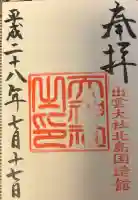 奉拝
出雲大社北島国造館
平成二十八年七月十七日